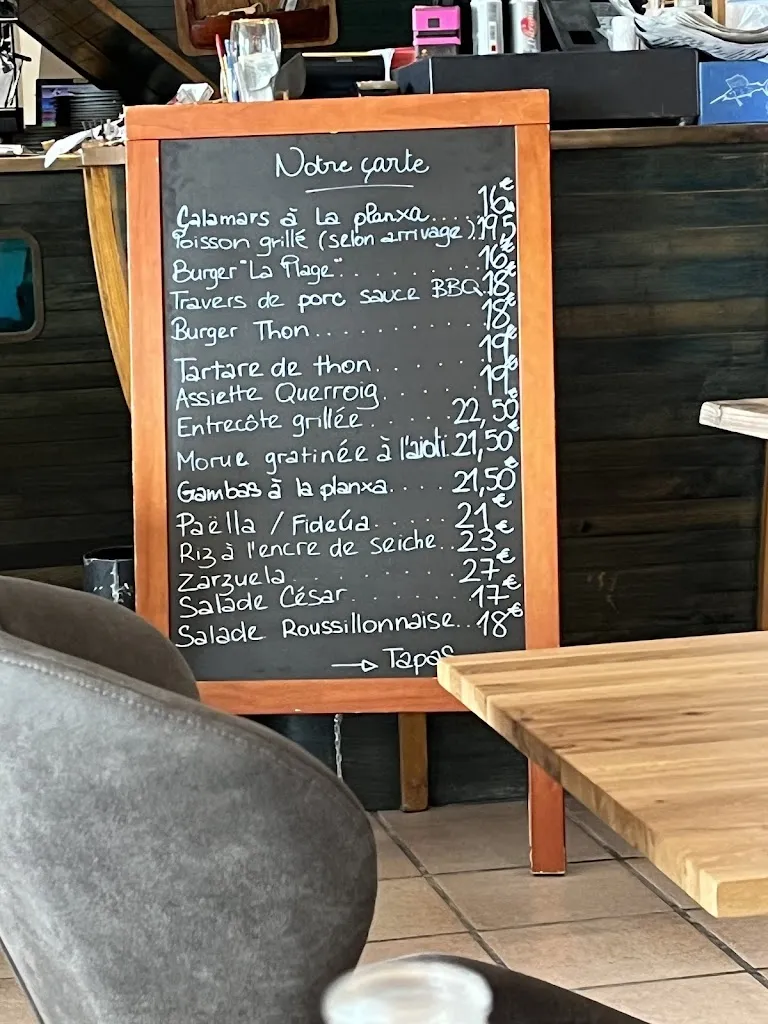 Notre carte
Calamars à La planxa.... 16€
Poisson grillé (selon arrivage).. 19,5
Burger "La Plage"......... 16€
Travers de porc sauce BBQ. 18€
Burger Thon............ 18€
Tartare de thon....... 19€
Assiette Querroig...... 19€
Entrecôte grillée...... 22,50€
Morue gratinée à l'aioli. 21,50€
Gambas à la planxa.... 21,50€
Paëlla / Fideúa...... 21€
Riz à l'encre de seiche.. 23€
Zarzuela.......... 27€
Salade César....... 17€
Salade Roussillonnaise.. 18€
→ Tapas